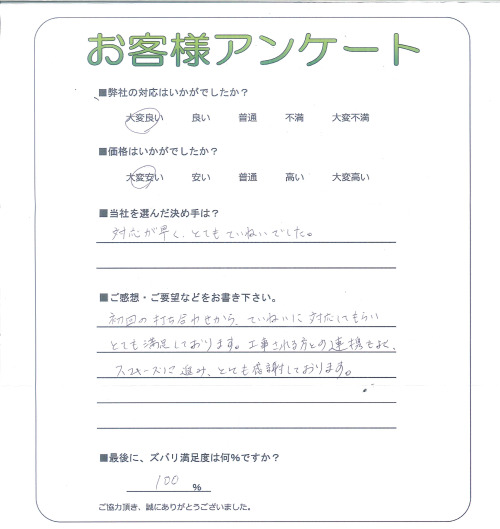 お客様アンケート
■弊社の対応はいかがでしたか？
大変良い 良い 普通 不満 大変不満
■価格はいかがでしたか？
大変安い 安い 普通 高い 大変高い
■当社を選んだ決め手は？
対応が早く、とてもていねいでした。
■ご感想・ご要望などをお書き下さい。
初回の打ち合わせから、ていねいに対応してもらい
とても満足しております。工事される方との連携もよく、
スムーズに進み、とても感謝しております。
■最後に、ズバリ満足度は何%ですか？
100 %
ご協力頂き、誠にありがとうございました。